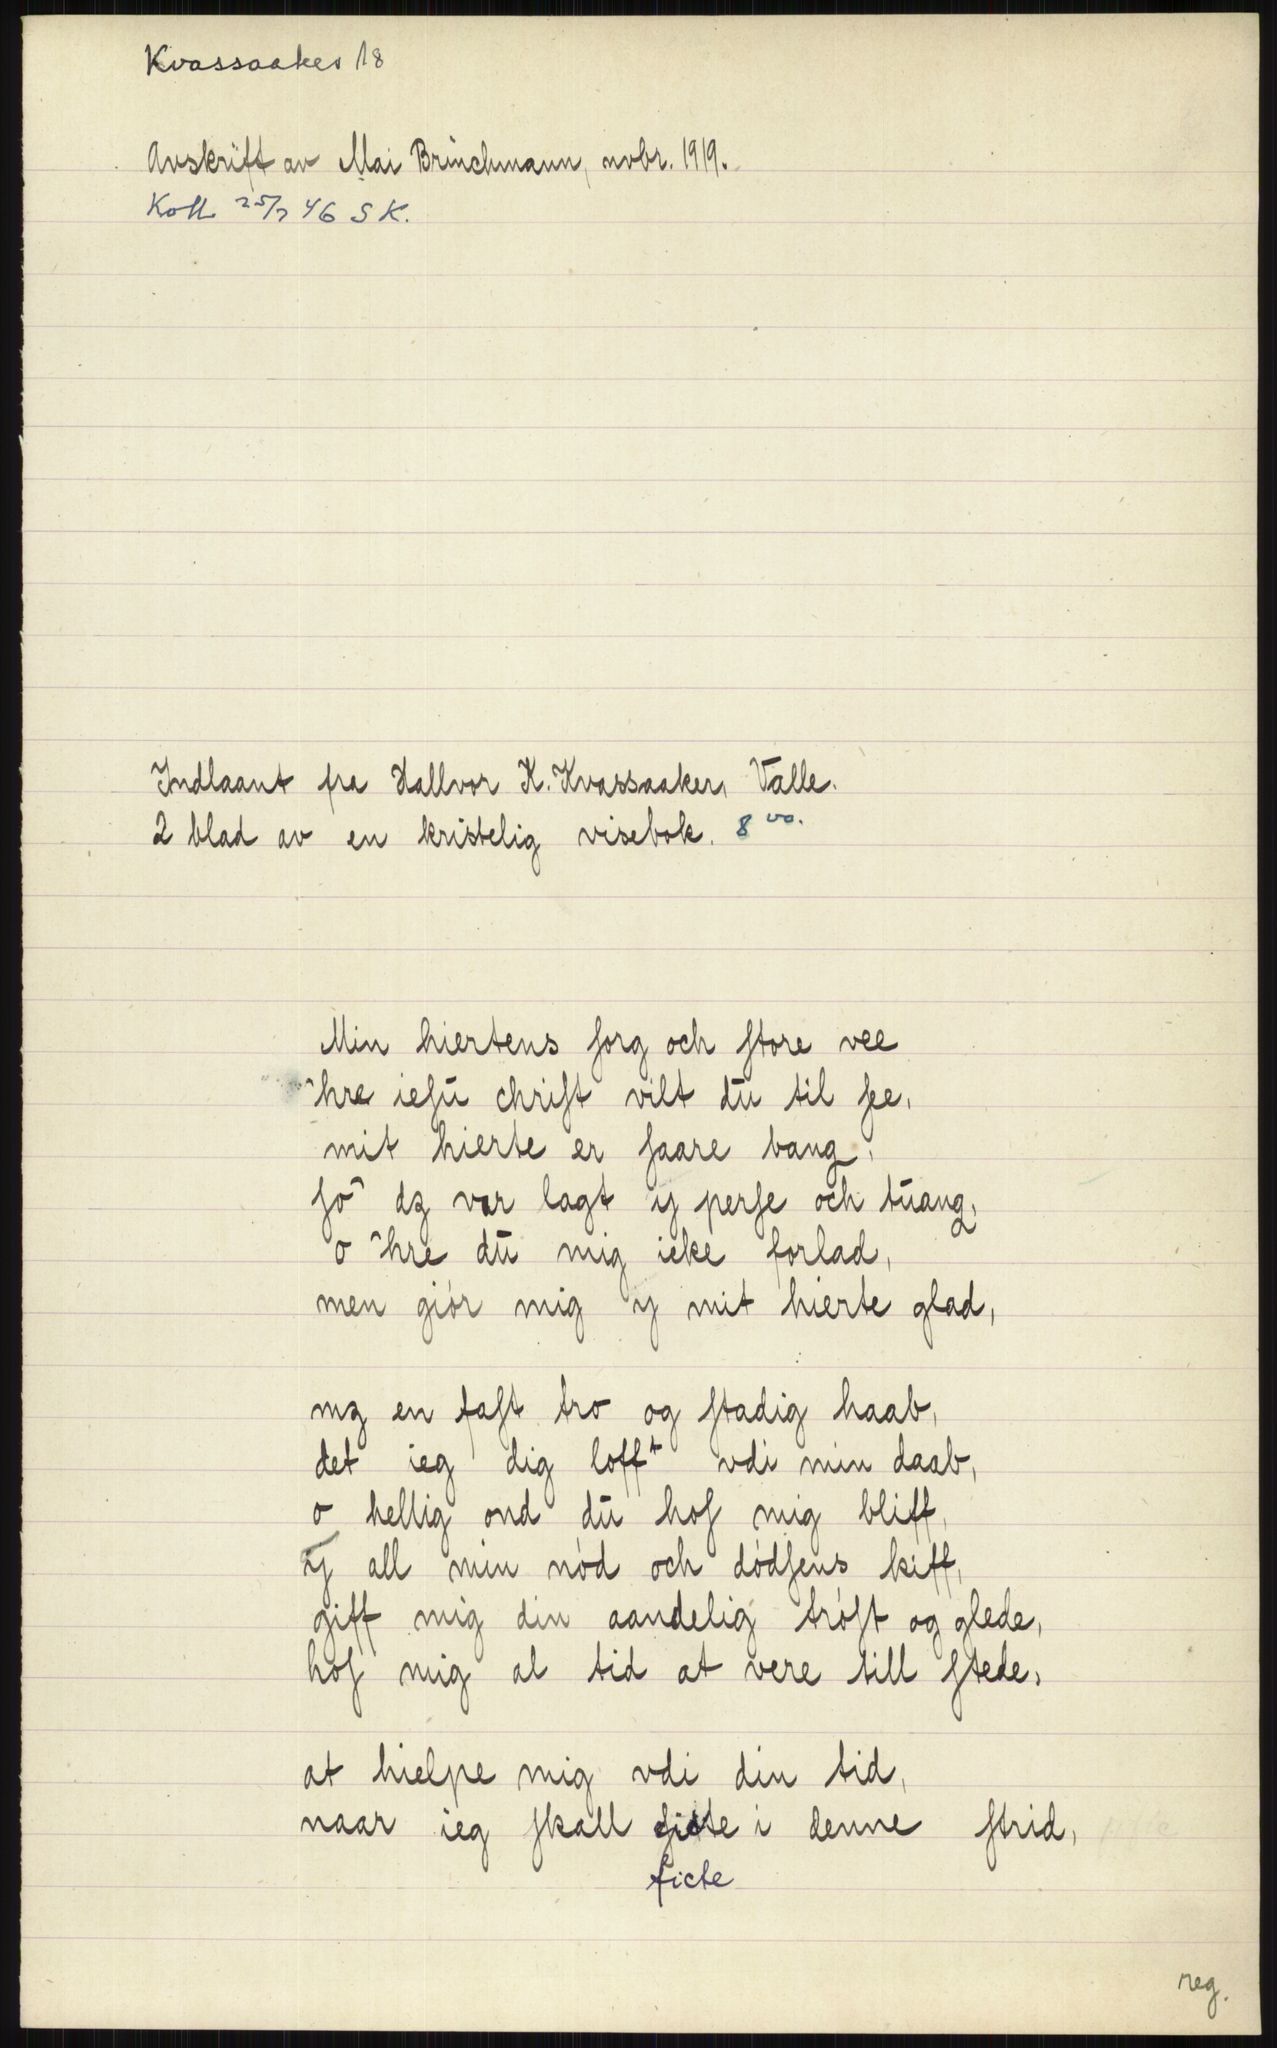 Kvassaaker 18
Avskrift av Mai Brinchmann, novbr. 1919.
Koll 25/7 46 S K.
Indlaant fra Hallvor K. Kvassaaker, Valle.
2 blad av en kristelig visebok. 8 vo.
Min hiertens ſorg och ſtore vee
hre ieſu chriſt vilt du til ſee,
mit hierte er ſaare bang,
ſo dz var lagt ij perſe och tuang,
o hre du mig icke forlad,
men giór mig ij mit hierte glad,
mz en faſt tro og ſtadig haab,
det ieg dig lofft vdi min daab,
o hellig ond du hoſ mig bliff,
ij all min nód och dódſens kiff,
giff mig din aandelig tróſt og glede,
hoſ mig al tid at vere till ſtede,
at hielpe mig vdi din tid,
naar ieg ſkall i denne ſtrid,
ficte
reg.